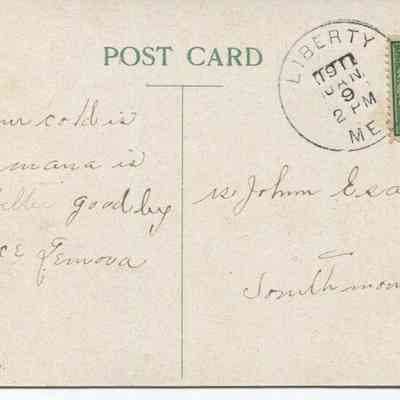 POST CARD
LIBERTY
1911
JAN
9
2 PM
ME
ur cold is
mana is
good by
ce Genova
rs John Esa
South mon